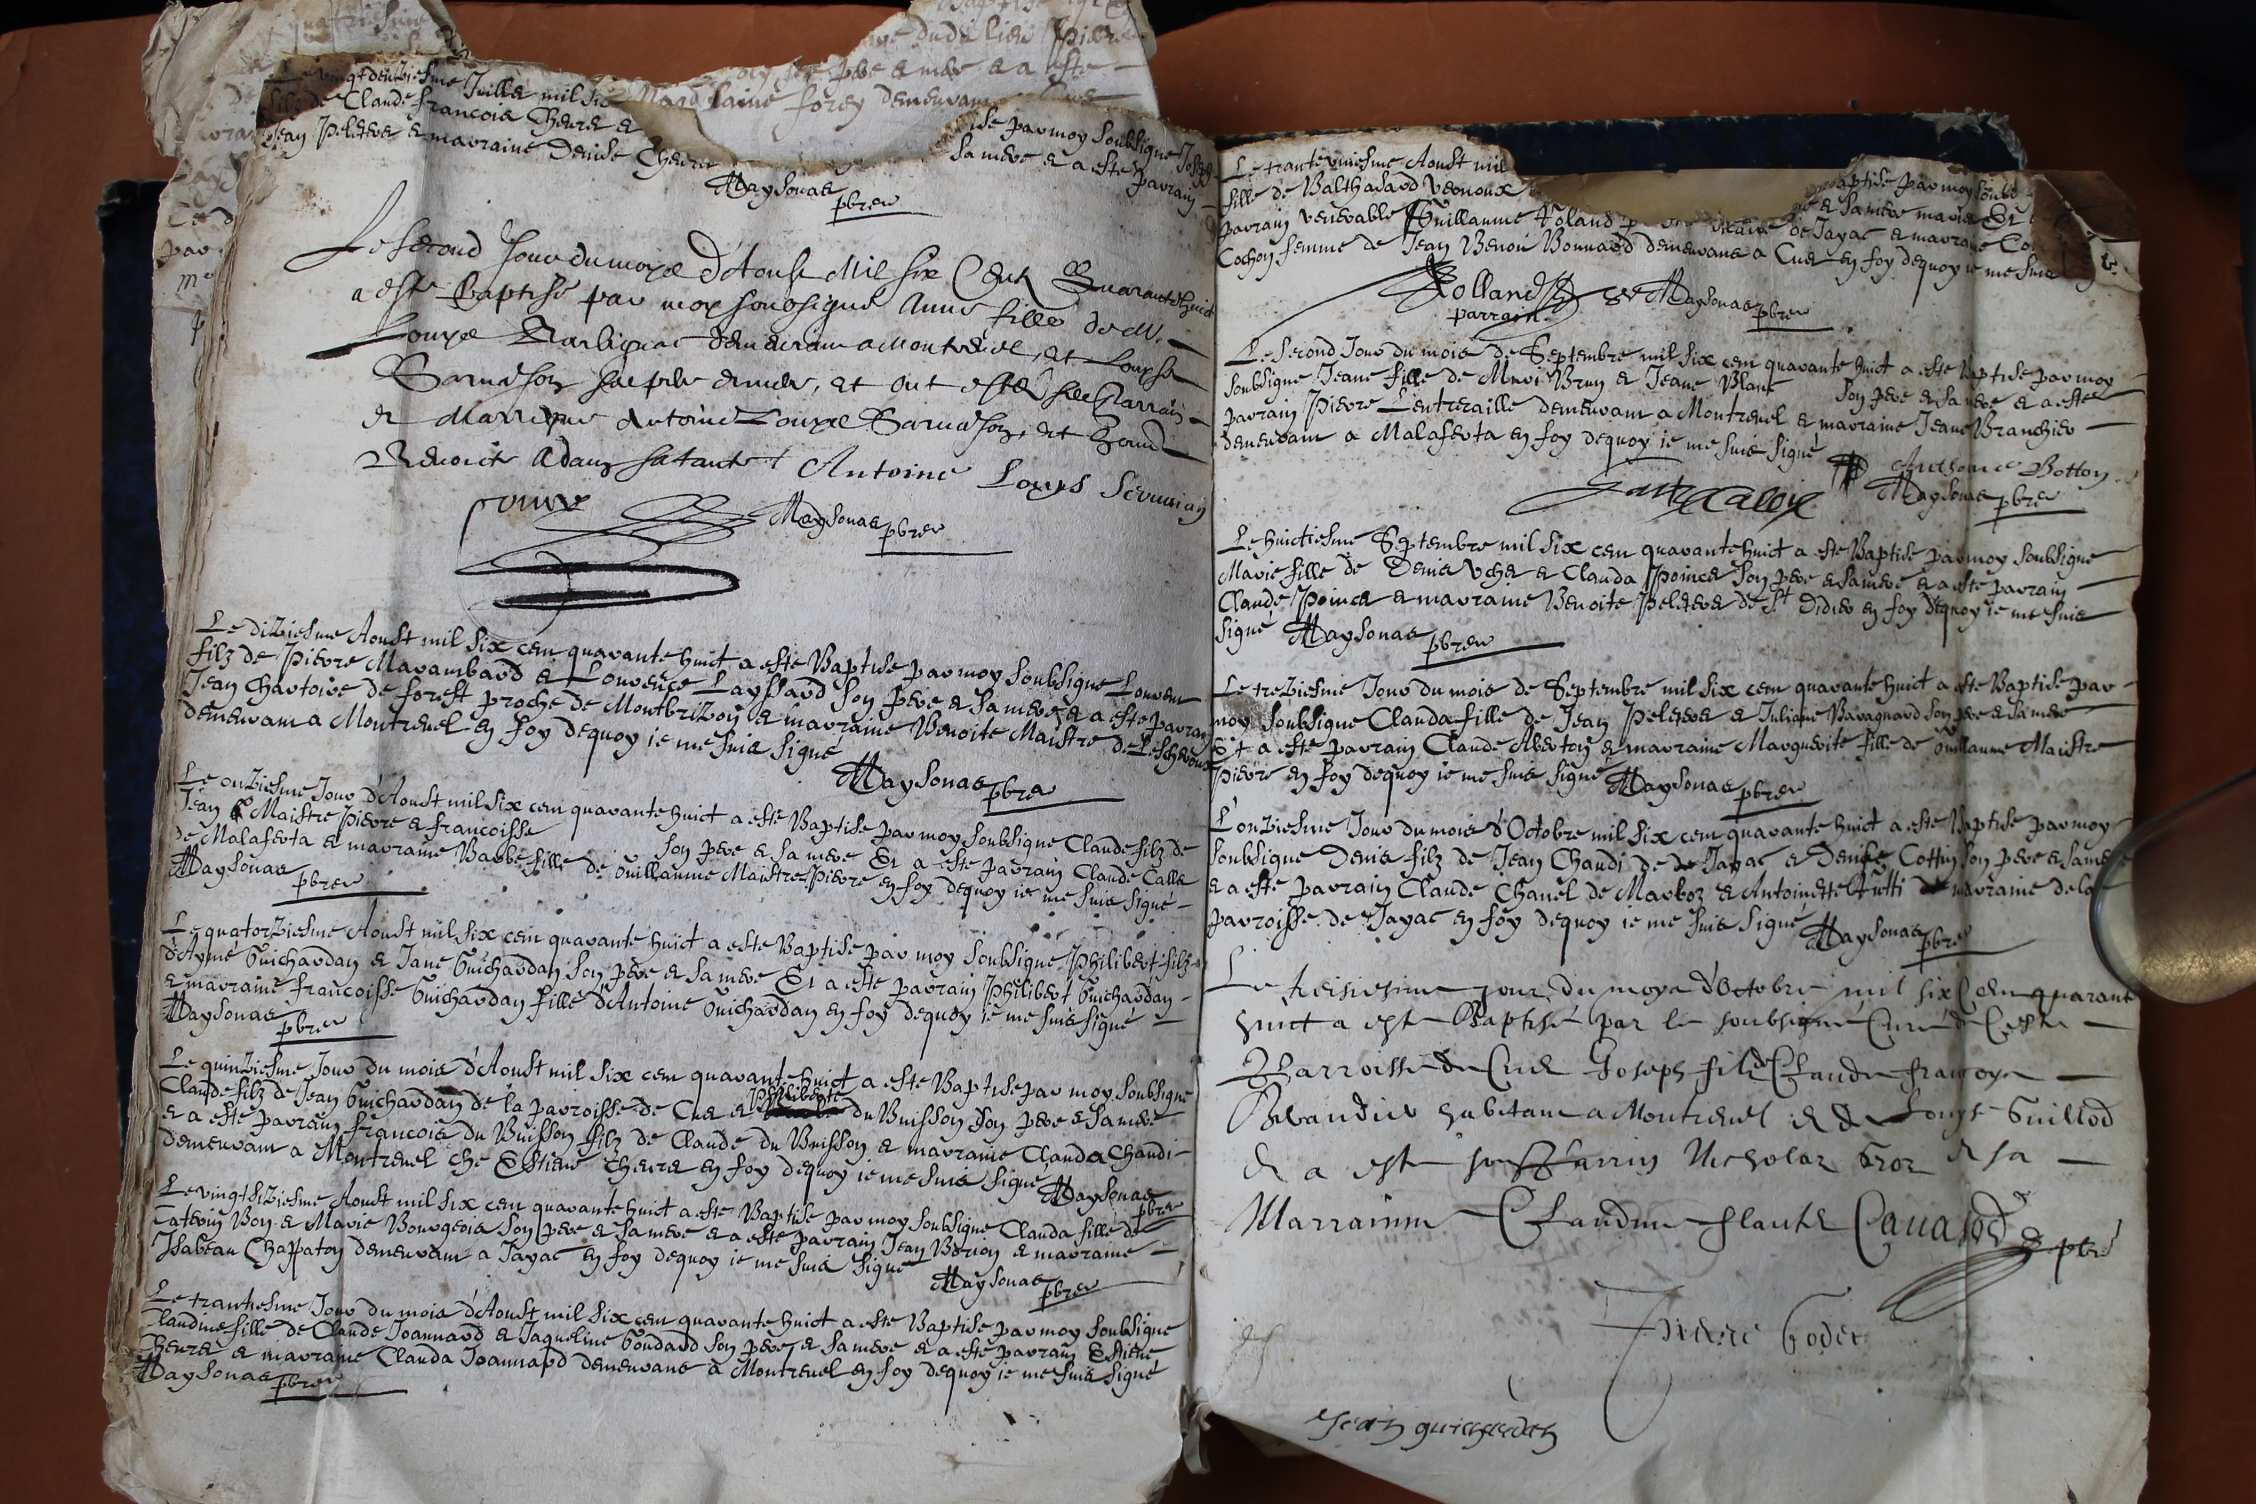 Le vingt deuxiesme Juillet mil six
filz de Claude francois Cheure et
Jean Peletier et marraine Denise Cheure
ise par moy soubsigne Joseph
sa mere et a este parrain
Maysonas pbre
Le second Jour du moys d'Aoust Mil six Cent Quarante huict
a este Baptisé par moy soubsigné Anne fille de M.
Louys demeurant a Montreuel, et Louyse
son pere et mere, et ont estés ses Parrain
et Marrayne Antoine Louys et
Benoite Adam sa tante
Antoine Louys
Maysonas pbre
Le diziesme Aoust mil six cent quarante huict a este Baptise par moy soubsigne Lourent
filz de Pierre Marambaud et Lourence Layssard son pere et sa mere et a este parrain
Jean Chartoire de forest proche de Montbrizon et marraine Benoite Maistre de Lescheroux
demeurant a Montreuel en foy dequoy ie me suis signé
Maysonas pbre
Le onziesme Jour d'Aoust mil six cent quarante huict a este Baptise par moy soubsigne Claude filz de
Jean Maistre Pierre et francoisse son pere et sa mere Et a este parrain Claude Calla
de Malaferta et marraine Barbe fille de Guillaume Maistre Pierre en foy dequoy ie me suis signé
Maysonas pbre
Le quatorziesme Aoust mil six cent quarante huict a este Baptise par moy soubsigne Philibert filz
d'Aymé Guichardan et Jane Guichardan son pere et sa mere Et a este parrain Philibert Guichardan
et marraine francoisse Guichardan fille d'Antoine Guichardan en foy dequoy ie me suis signé
Maysonas pbre
Le quinziesme Jour du mois d'Aoust mil six cent quarante huict a este Baptise par moy soubsigne
Claude filz de Jean Guichardan de la parroisse de Cuet et Philiberte du Buisson son pere et sa mere
et a este parrain francois du Buisson filz de Claude du Buisson et marraine Clauda Chandi
demeurant a Montreuel che Estiene Cheure en foy dequoy ie me suis signé Maysonas pbre
Le vingt siziesme Aoust mil six cent quarante huict a este Baptise par moy soubsigne Clauda fille de
Caterin Bon et Marie Bourgeois son pere et sa mere et a este parrain Jean Borion et marraine
Isabeau Chapaton demeurant a Jayac en foy dequoy ie me suis signé
Maysonas pbre
Le trantiesme Jour du mois d'Aoust mil six cent quarante huict a este Baptise par moy soubsigne
Claudine fille de Claude Joannard et Jaqueline Goudard son pere et sa mere et a este parrain Estiene
Cheure et marraine Clauda Joannard demeurans a Montreuel en foy dequoy ie me suis signé
Maysonas pbre
Le trante uniesme Aoust mil baptise par moy soubs
fille de Balthasard Vernoux et sa mere marie Et
parrain venerable Guillaume Roland vicaire de Jayac et marraine
Cochon femme de Jean Benoit Bonnard demeurans a Cuet en foy dequoy ie me suis
Rolland
parrain
Maysonas pbre
Le second Jour du mois de Septembre mil six cent quarante huict a este baptise par moy
soubsigne Jeane fille de Mari Brun et Jeane Blanc son pere et sa mere et a este
parrain Pierre Lentreraille demeurant a Montreuel et marraine Jeane Branchier
demeurant a Malaferta en foy dequoy ie me suis signé
Anthoine Botton
Maysonas pbre
Le huictiesme Septembre mil six cent quarante huict a este Baptise par moy soubsigne
Marie fille de Denis Vcher et Clauda Poincet son pere et sa mere et a este parrain
Claude Poincet et marraine Benoite Peletier de St Didier en foy dequoy ie me suis
signé Maysonas pbre
Le treziesme Jour du mois de Septembre mil six cent quarante huict a este Baptise par
moy soubsigne Clauda fille de Jean Peletier et Juliane Baraquard son pere et sa mere
Et a este parrain Claude Aberton et marraine Marguerite fille de Guillaume Maistre
Pierre en foy dequoy ie me suis signé Maysonas pbre
L'onziesme Jour du mois d'Octobre mil six cent quarante huict a este Baptise par moy
soubsigne Denis filz de Jean Chandi de Jayac et Denise Cottin son pere et sa mere
et a este parrain Claude Chanel de Marboz et Antoinette marraine de la
parroisse de Jayac en foy dequoy ie me suis signé Maysonas pbre
Le treisiesme jour du moys d'Octobre mil six Cent quarante
huict a esté Baptisé par le soubsigné Curé de Ceste
Parroisse de Cuet Joseph filz de Claude francoys
habitant a Montreuel et de Louyse Guillod
et a esté son Parrin Nicholas Gror et sa
Marrainne Claudine flanta
pbre
Godet
Jean guichardan